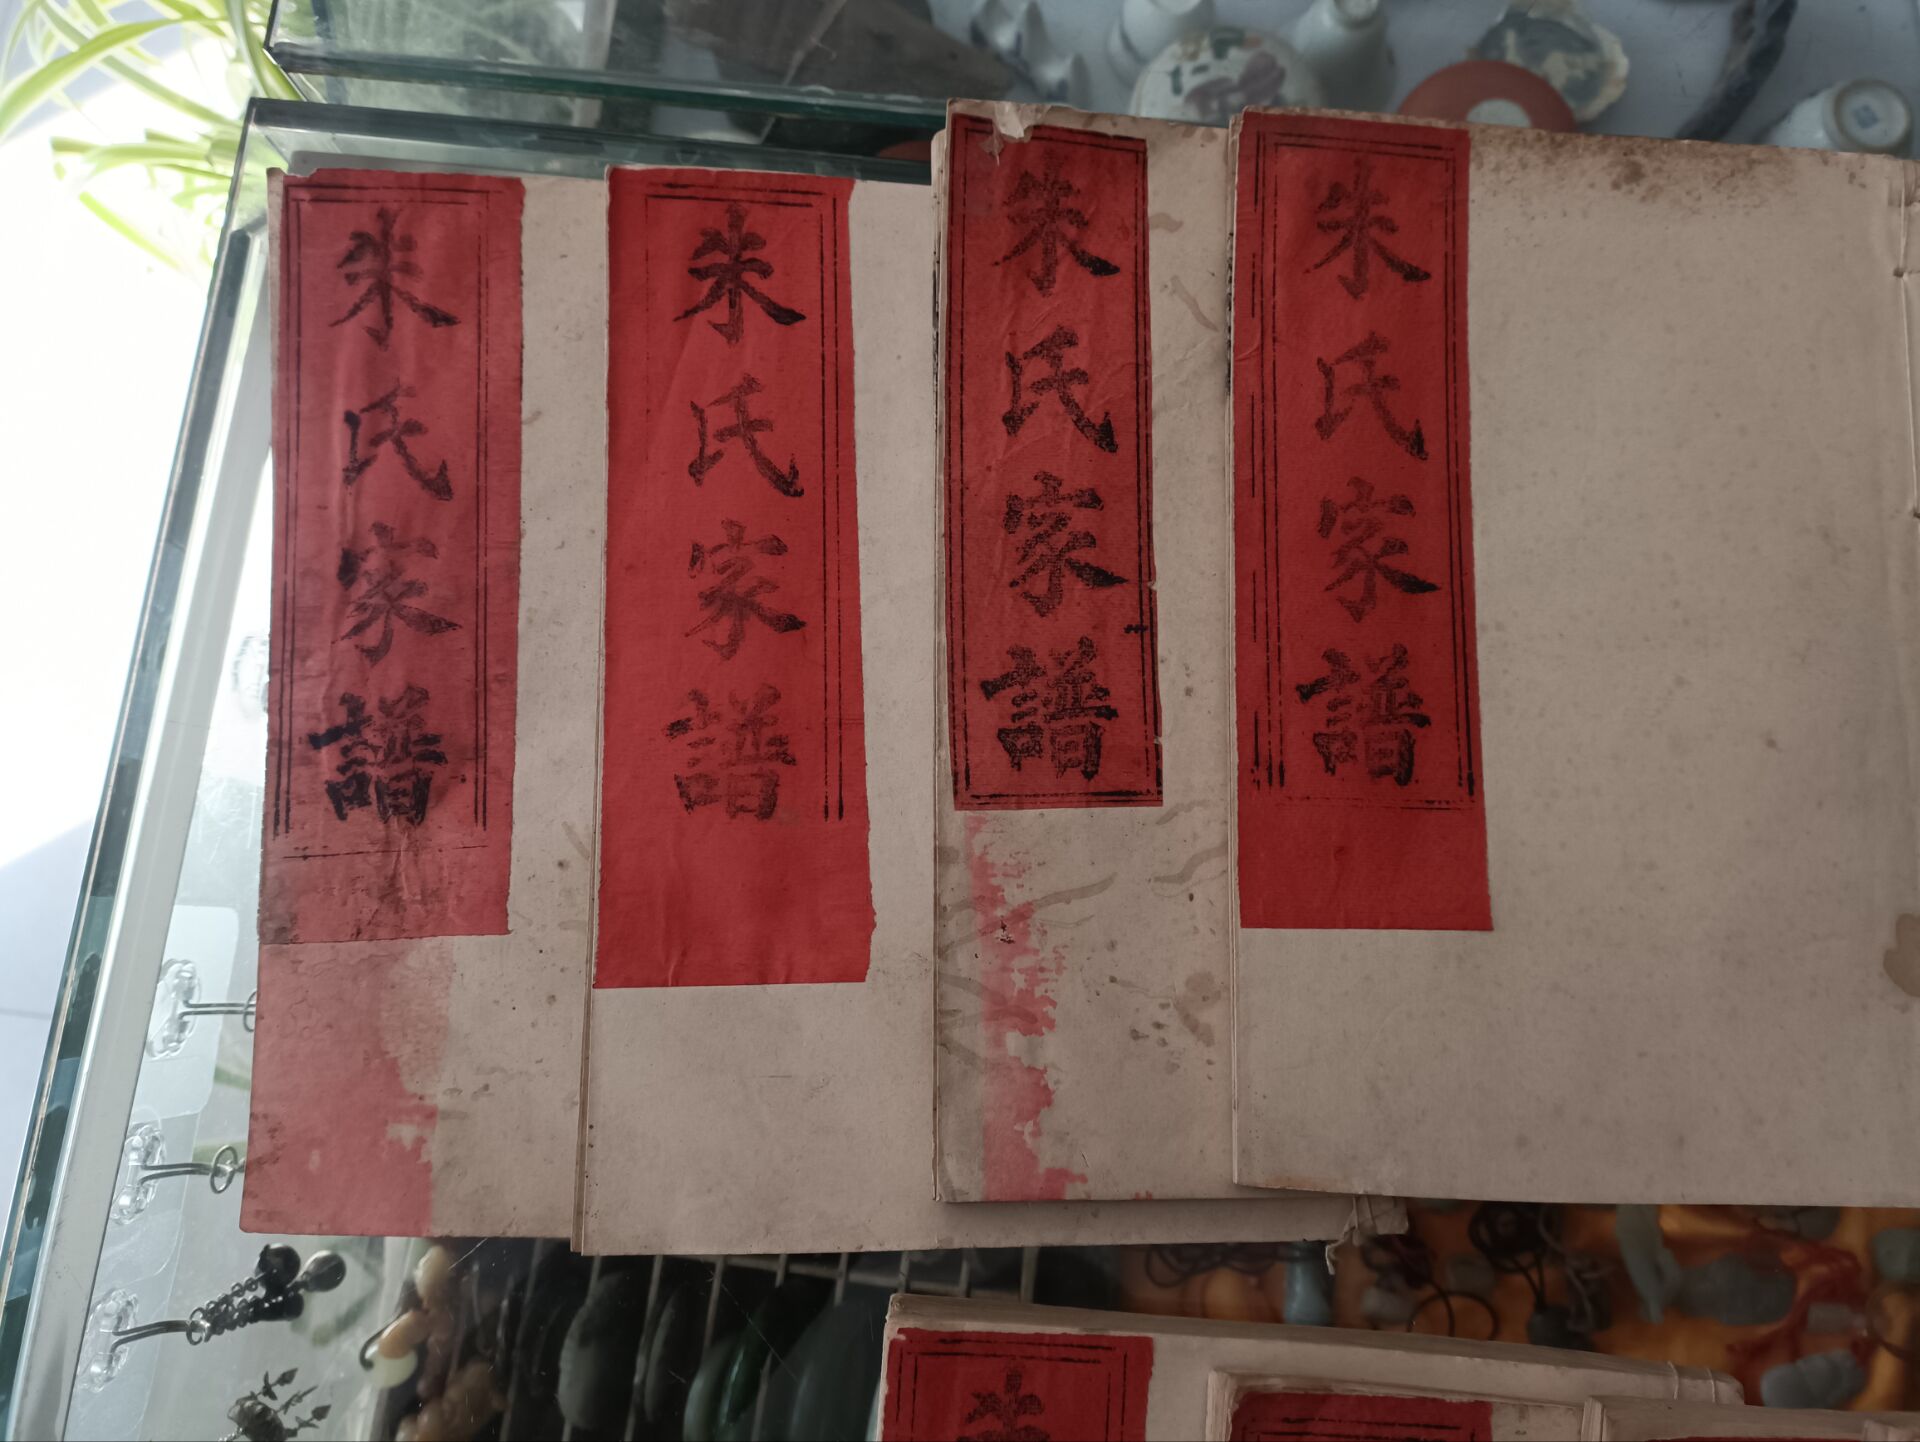 朱氏家譜
朱氏家譜
朱氏家譜
朱氏家譜